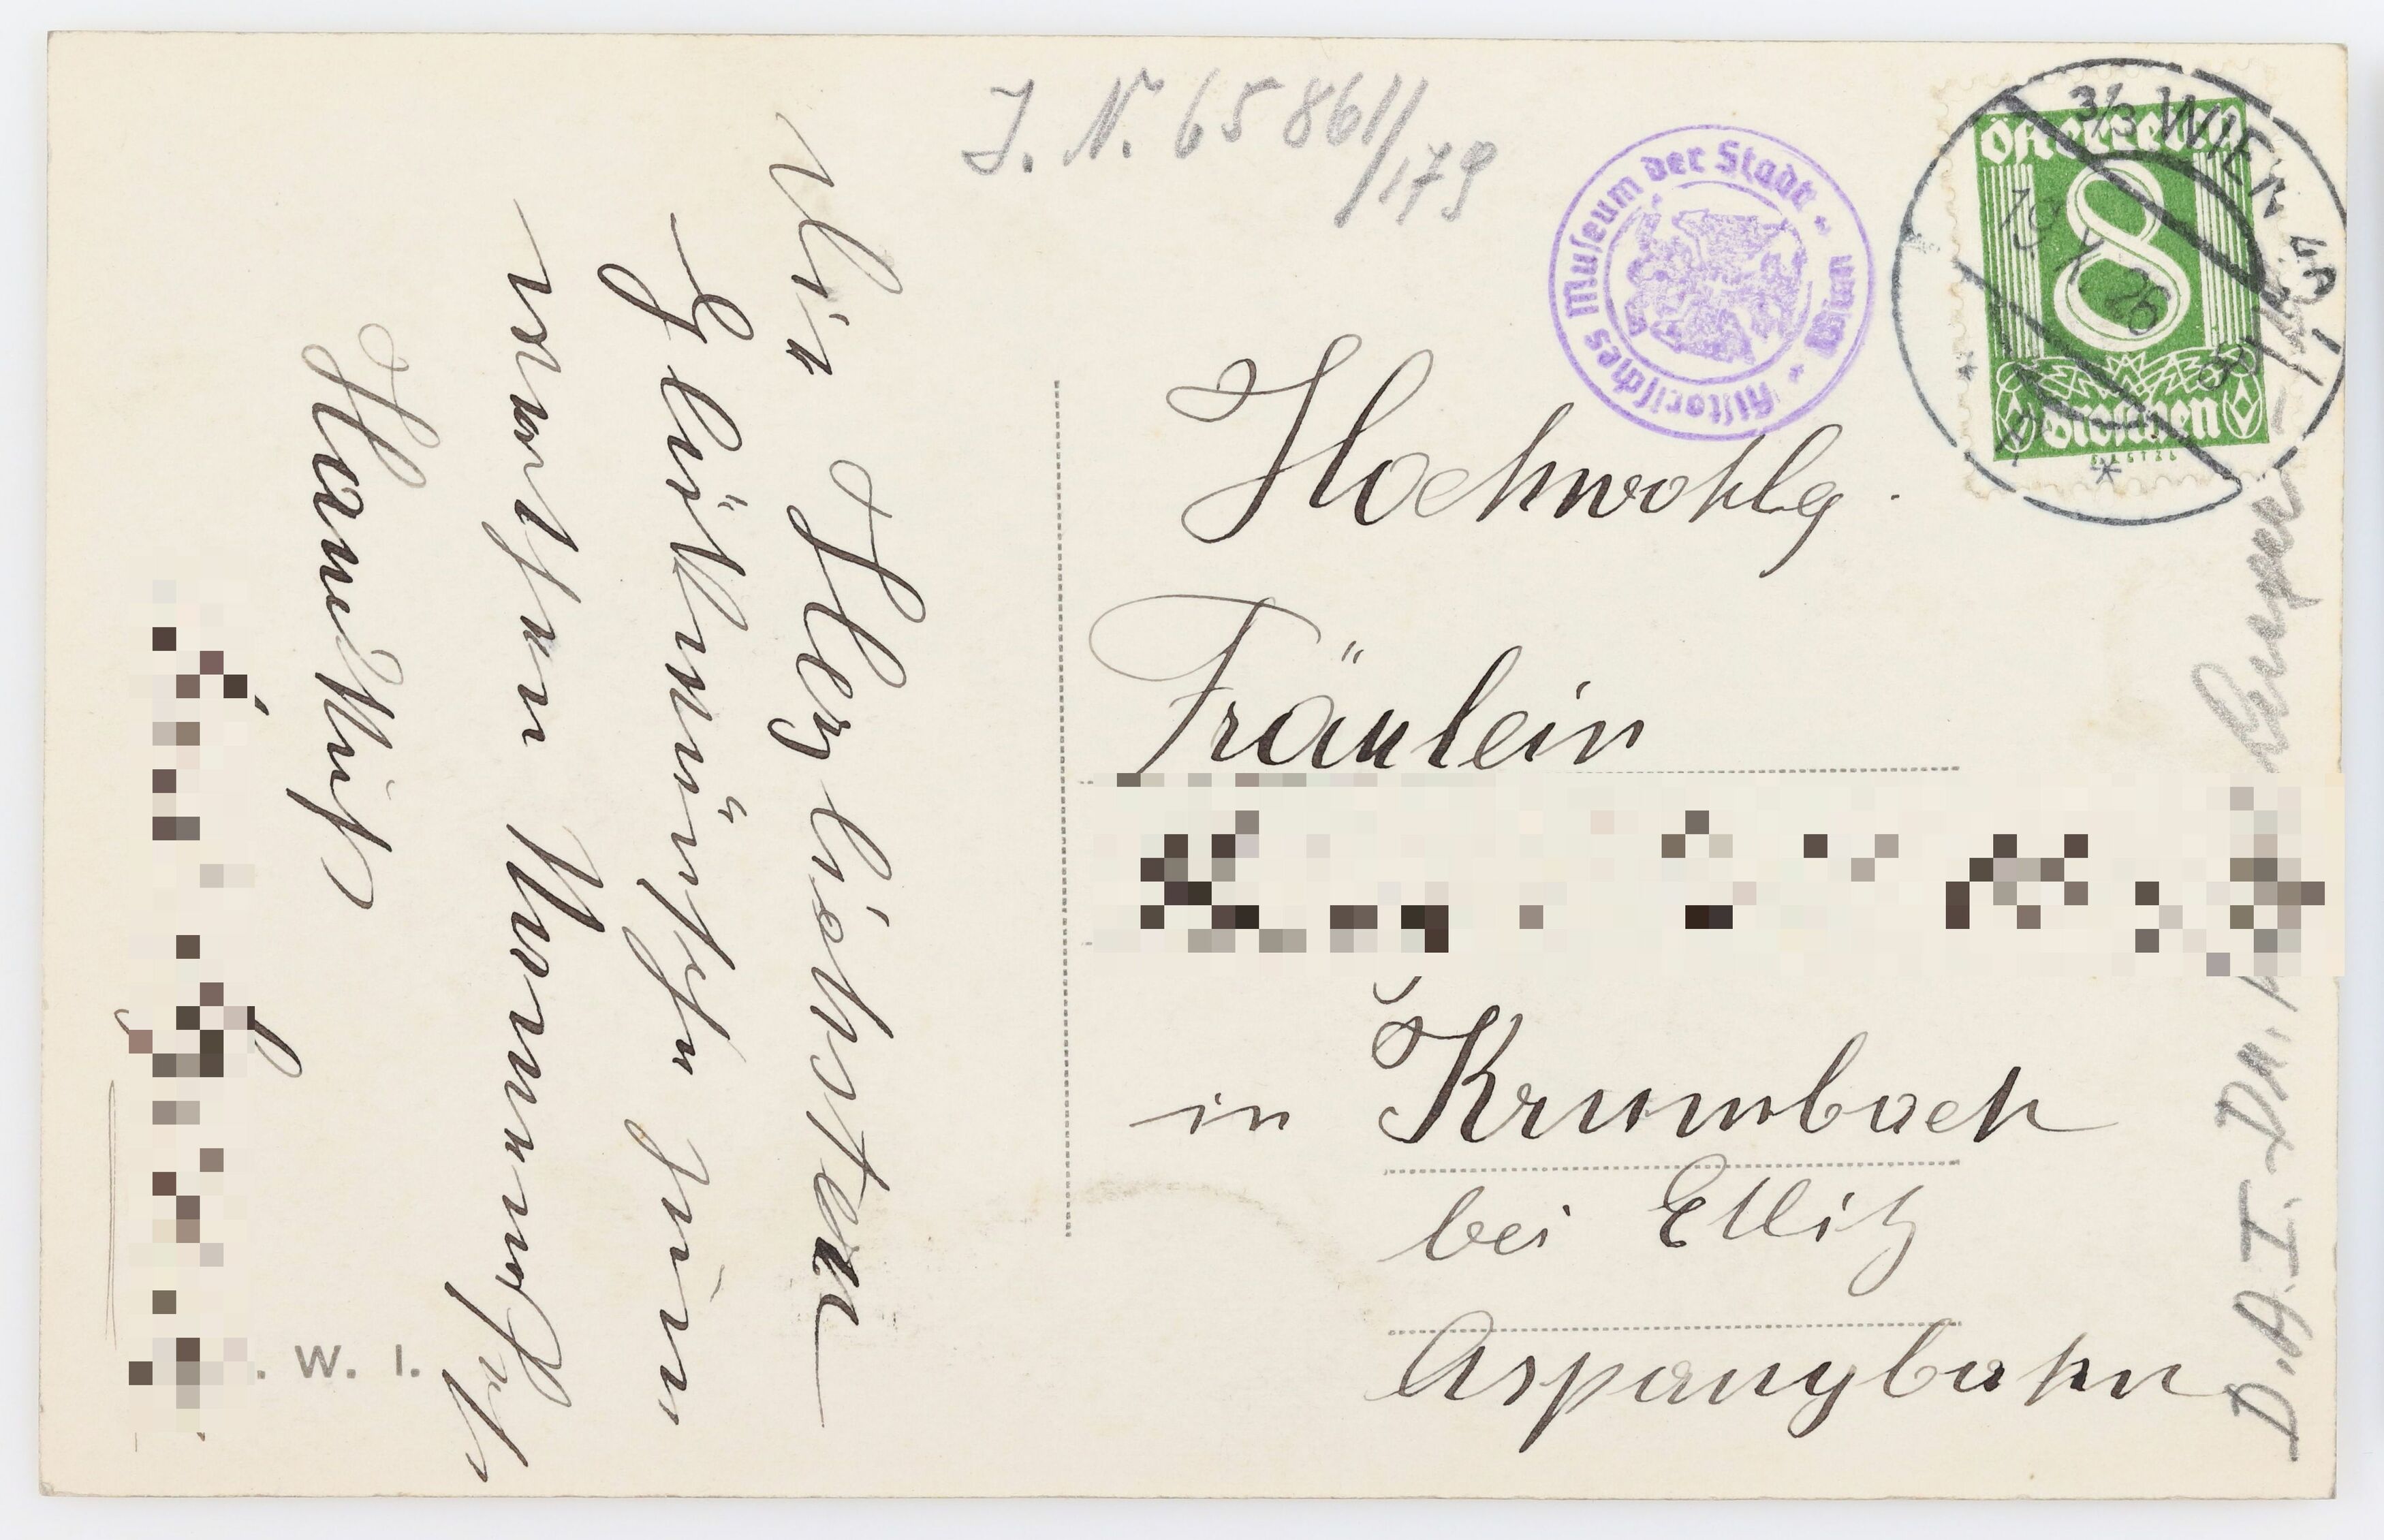 J. N. 65861/179
Historisches Museum der Stadt Wien
Österreich
8
Groschen
3/3 WIEN 49
19. X. 26
Die Herzlichsten
Glückwünsche zum
werthen Namensfest
Hannihift
. W. I.
Hochwohlg.
Fräulein
in Krumbach
bei Edlitz
Aspangbahn
D.A.I. Du.